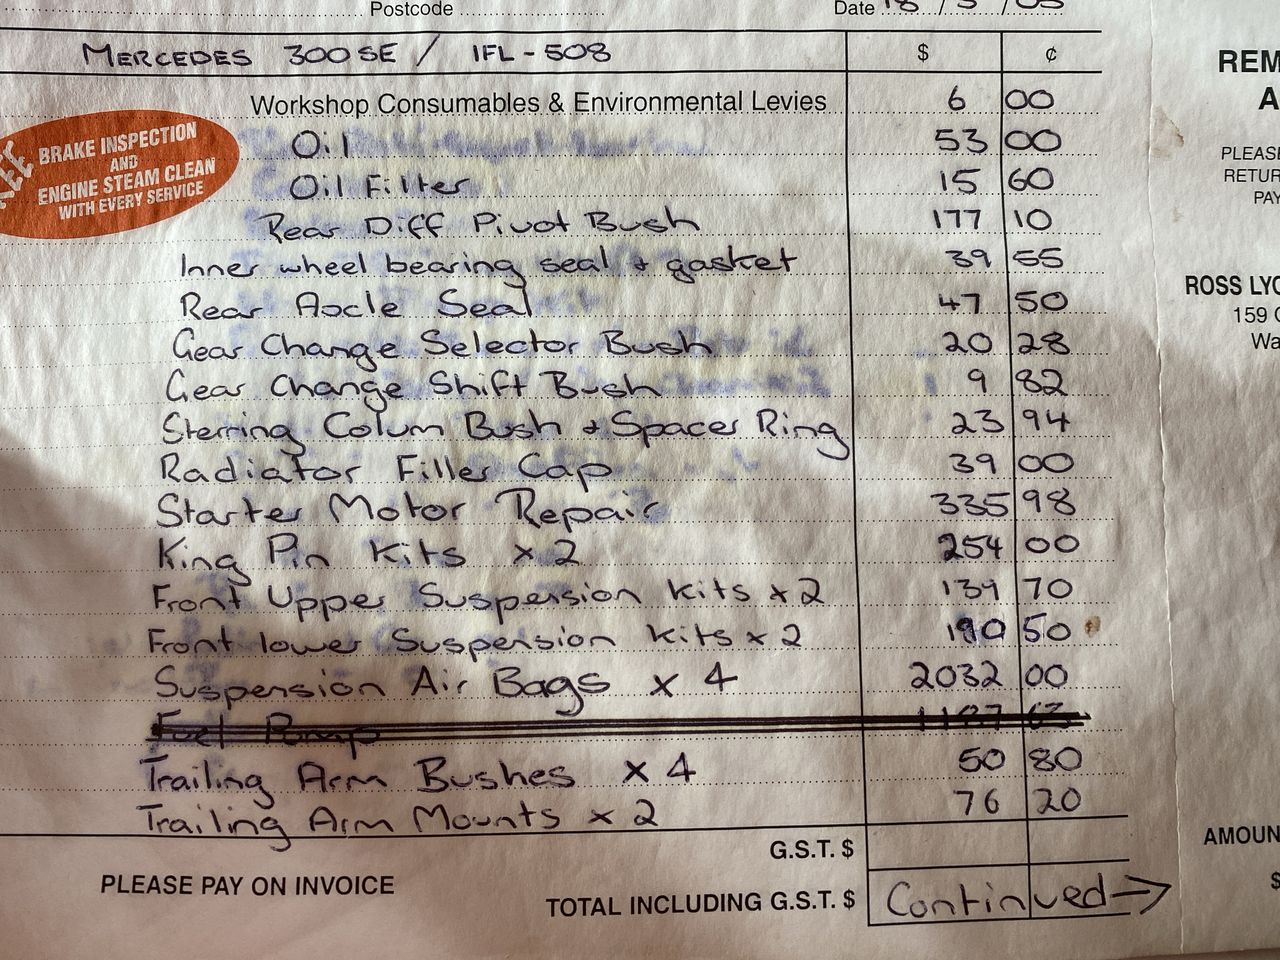 Postcode Date
MERCEDES 300SE / IFL-508 $ ¢
Workshop Consumables & Environmental Levies 6 00
BRAKE INSPECTION
AND
ENGINE STEAM CLEAN
WITH EVERY SERVICE
Oil 53 00
Oil Filter 15 60
Rear Diff Pivot Bush 177 10
Inner wheel bearing seal + gasket 39 55
Rear Axcle Seal 47 50
Gear Change Selector Bush 20 28
Gear Change Shift Bush 9 82
Sterring Colum Bush & Spacer Ring 23 94
Radiator Filler Cap 39 00
Starter Motor Repair 335 98
King Pin Kits x 2 254 00
Front Upper Suspension kits x 2 139 70
Front lower Suspension kits x 2 190 50
Suspension Air Bags x 4 2032 00
Fuel Pump
Trailing Arm Bushes x 4 50 80
Trailing Arm Mounts x 2 76 20
G.S.T. $
PLEASE PAY ON INVOICE
TOTAL INCLUDING G.S.T. $ Continued →
REM
A
PLEASE
RETUR
PAY
ROSS LYO
159
Wa
AMOUN
$